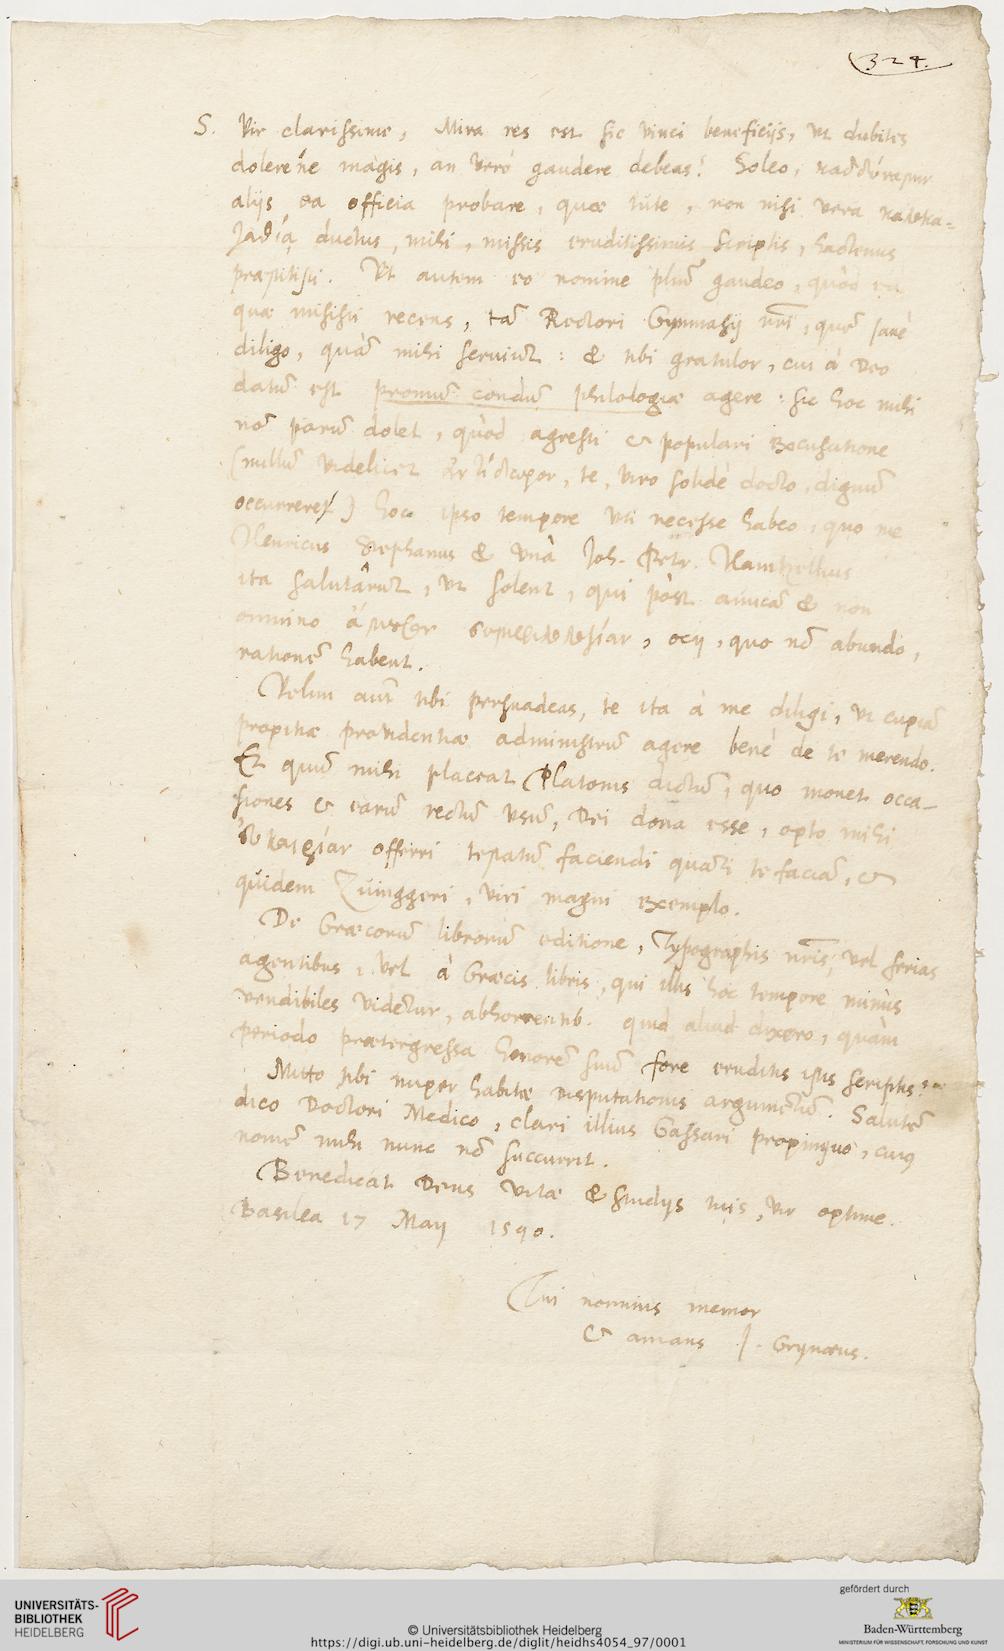 324.
S. Vir clarissime, Mira res est sic vinci beneficijs, ut dubites
doleréne magis, an veró gaudere debeas? Soleo, καθ δύναμιν
alijs ea officia probare, quæ tute, non nisi vera καλοκα=
γαθίᾳ ductus, mihi, missis eruditissimis scriptis, hactenus
præstitisti. Ut autem eo nomine plur̃ gaudeo, quòd ea
quæ misisti recens, tam̃ Rectori Gymnasij nr̃i, quem̃ sanè
diligo, quàm̃ mihi serviunt̃: & tibi gratulor, cui à Deo
datum̃ est promum̃ condum̃ philologiæ agere: sic hoc mihi
non̄ parum̃ dolet, quòd agresti & populari excusatione
(nullum̃ videlicet ἀντίδωρον, te, viro solidè docto, dignum̃
occurreret) hoc ipso tempore uti necesse habeo, quo me
Henricus Stephanus & unà Joh. Petr.
ita salutârunt̃, ut solent, qui pòst amicam̃ & non
omnino ἄμουσον, ocij, quo nõ abundo,
rationem̃ habent.
Velim aut̃ tibi persuadeas, te ita à me diligi, ut cupiam̃
propitiæ providentiæ administrum̃ agere benè de te merendo.
Et quum̃ mihi placeat Platonis dictum̃, quo monet occa-
siones & earum̃ rectum̃ usum̃, Dei dona esse, opto mihi
εὐκαιρίαν offerri testatum̃ faciendi quanti te faciam̃, &
quidem Zuinggeri, viri magni exemplo.
De Græcorum̃ librorum̃ editione, Typographis nr̃is, vel ferias
agentibus, vel à Græcis libris, qui illis hoc tempore minùs
vendibiles videntur, abhorrentib. quid aliud dixero, quàm
periodo prætergressa honorem̃ suum̃ fore eruditis istis scriptis?
Mitto tibi nuper habitæ disputationis argumentum̃. Salutem̃
dico Doctori Medico, clari illius Gassari propinquo, cuius
nomen̄ mihi nunc nõ succurrit.
Benedicat Deus vitæ & studijs tuis, vir optime.
Basilea 17 Maij 1590.
Tui nominis memor
& amans J. Grynæus.
UNIVERSITÄTS-
BIBLIOTHEK
HEIDELBERG
© Universitätsbibliothek Heidelberg
https://digi.ub.uni-heidelberg.de/diglit/heidhs4054_97/0001
gefördert durch
Baden-Württemberg
MINISTERIUM FÜR WISSENSCHAFT, FORSCHUNG UND KUNST